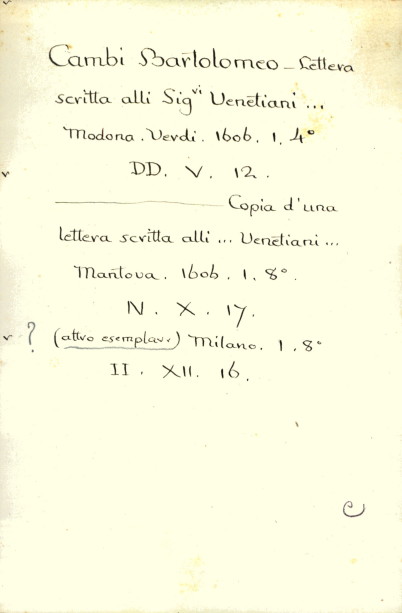 Cambi Bartolomeo _ Lettera
scritta alli Sig.vi Venetiani ...
Modona . Verdi . 1606 . 1 . 4°
DD . V . 12 .
——— Copia d'una
lettera scritta alli ... Venetiani ...
Mantova . 1606 . 1 . 8° .
N . X . 17 .
v ? (altro esemplare) Milano . 1 . 8°
II . XII . 16 .
C